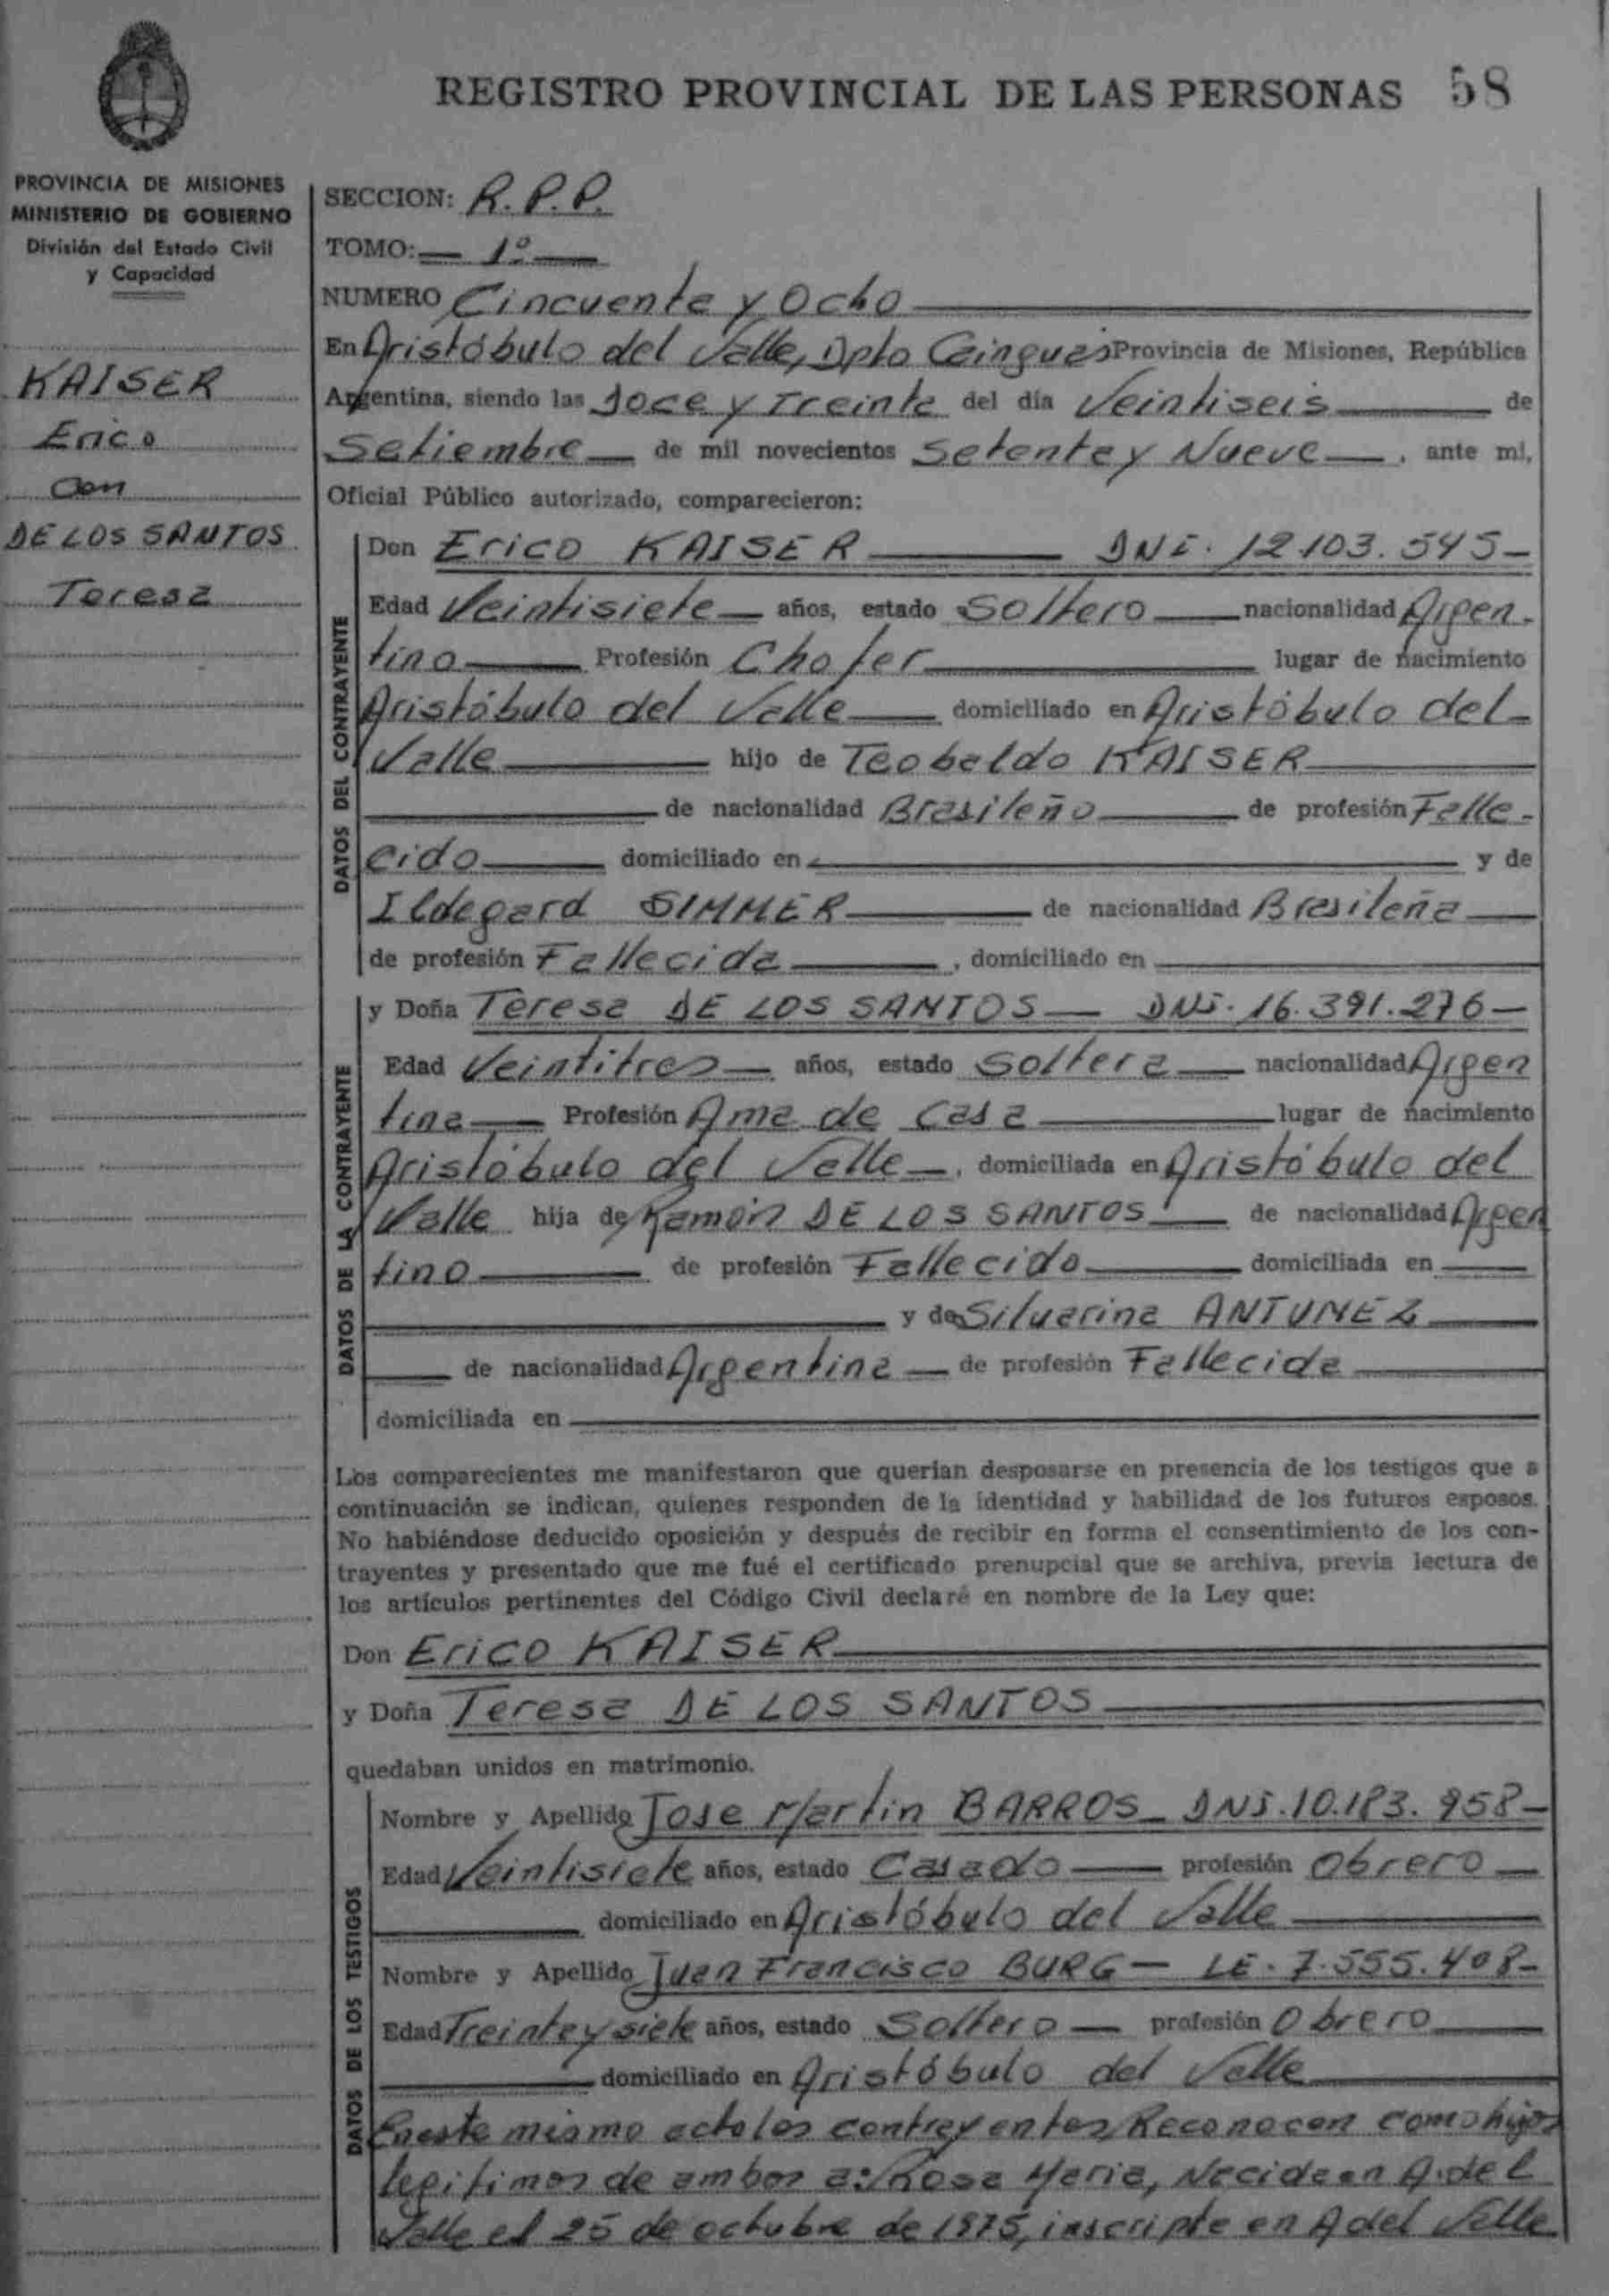 REGISTRO PROVINCIAL DE LAS PERSONAS 58
PROVINCIA DE MISIONES
MINISTERIO DE GOBIERNO
División del Estado Civil
y Capacidad
KAISER
Erico
con
DE LOS SANTOS
Teresa
SECCION: R.P.P.
TOMO: 1º
NUMERO Cincuenta y Ocho
En Aristóbulo del Valle, Dpto Cainguas Provincia de Misiones, República
Argentina, siendo las Doce y Treinta del día Veintiseis de
Setiembre de mil novecientos Setenta y Nueve, ante mi,
Oficial Público autorizado, comparecieron:
DATOS DEL CONTRAYENTE
Don Erico KAISER DNI. 12.103.545-
Edad Veintisiete años, estado Soltero nacionalidad Argen-
tino Profesión Chofer lugar de nacimiento
Aristóbulo del Valle domiciliado en Aristóbulo del
Valle hijo de Teobaldo KAISER
de nacionalidad Brasileño de profesión Falle-
cido domiciliado en y de
Ildegard SIMMER de nacionalidad Brasileña
de profesión Fallecida, domiciliado en
DATOS DE LA CONTRAYENTE
y Doña Teresa DE LOS SANTOS DNI. 16.391.276-
Edad Veintitres años, estado Soltera nacionalidad Argen
tina Profesión Ama de Casa lugar de nacimiento
Aristóbulo del Valle, domiciliada en Aristóbulo del
Valle hija de Ramón DE LOS SANTOS de nacionalidad Argen
tino de profesión Fallecido domiciliada en
y de Silvarina ANTUNEZ
de nacionalidad Argentina de profesión Fallecida
domiciliada en
Los comparecientes me manifestaron que querían desposarse en presencia de los testigos que a
continuación se indican, quienes responden de la identidad y habilidad de los futuros esposos.
No habiéndose deducido oposición y después de recibir en forma el consentimiento de los con-
trayentes y presentado que me fué el certificado prenupcial que se archiva, previa lectura de
los artículos pertinentes del Código Civil declaré en nombre de la Ley que:
Don Erico KAISER
y Doña Teresa DE LOS SANTOS
quedaban unidos en matrimonio.
DATOS DE LOS TESTIGOS
Nombre y Apellido Jose Martin BARROS DNI. 10.183.958-
Edad Veintisiete años, estado Casado profesión Obrero
domiciliado en Aristóbulo del Valle
Nombre y Apellido Juan Francisco BURG - LE. 7.555.408-
Edad Treinta y siete años, estado Soltero profesión Obrero
domiciliado en Aristóbulo del Valle
En este mismo acto los contrayentes Reconocen como hijos
legitimos de ambos a: Rosa Maria, Nacida en A. del
Valle el 25 de octubre de 1975, inscripta en A del Valle